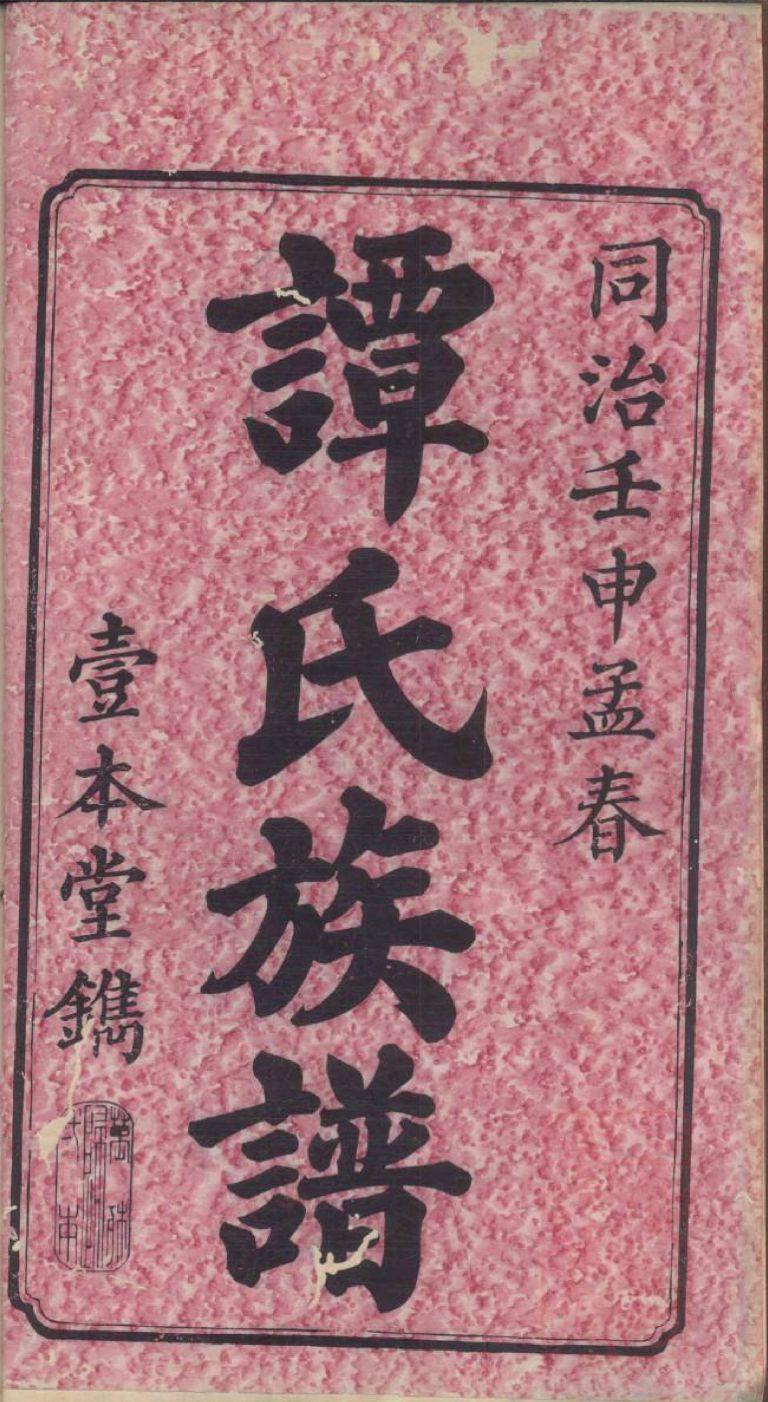 同治壬申孟春
譚氏族譜
壹本堂鐫